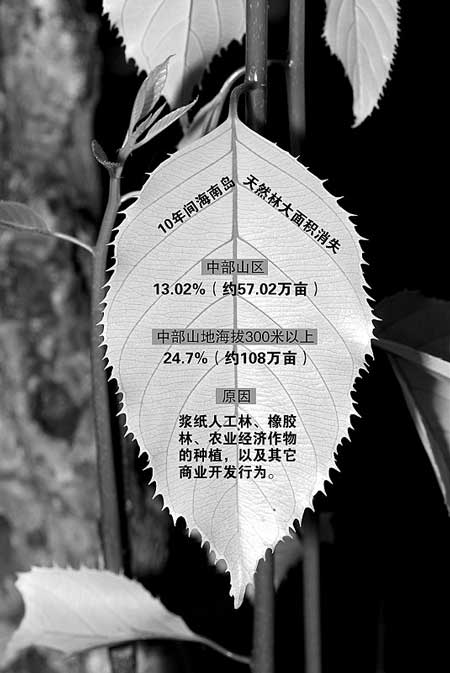 10年间海南岛 天然林大面积消失
中部山区
13.02%（约57.02万亩）
中部山地海拔300米以上
24.7%（约108万亩）
原因
浆纸人工林、橡胶
林、农业经济作物
的种植，以及其它
商业开发行为。